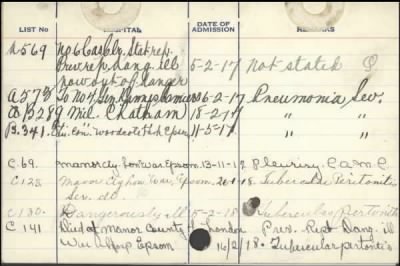 LIST No HOSPITAL DATE OF ADMISSION REMARKS
A569 No 6 Stat. rep.
Prev. rep. Dang. ill
now out of danger 5-2-17 Not stated
A573 To No 4 Gen 6-2-17 Pneumonia Sev.
B289 Mil. Chatham 18-2-17 " "
B.341. Con. Woodcote Pk Epsom 11-5-17 " "
C.69. Manor Cty. War Epsom 13-11-17 Pleurisy C.A.M.C.
C123 Manor War, Epsom 1-18 Tubercular Peritonitis
C130. Dangerously ill 5-2-18 Tubercular Peritonitis
C 141 Died at Manor County of London Prev. Rept Dang. ill
War Epsom 14/2/18. Tubercular peritonitis